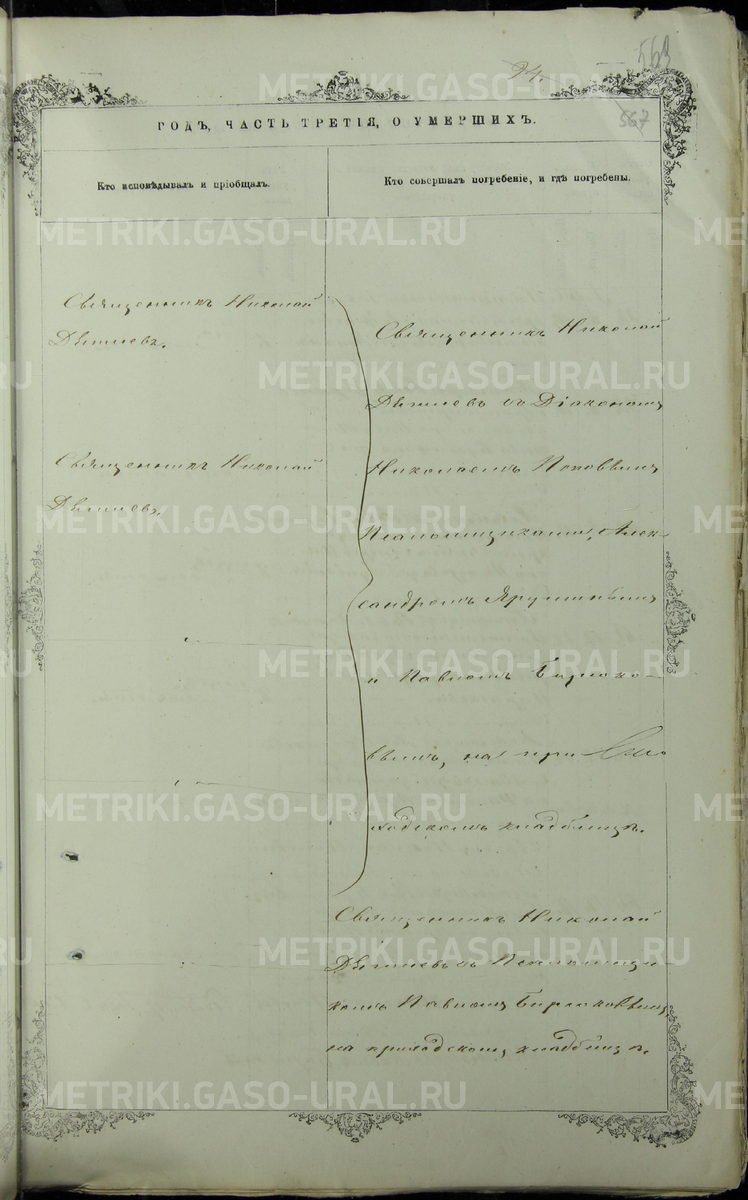 94.
563
567
ГОДЪ, ЧАСТЬ ТРЕТІЯ, О УМЕРШИХЪ.
Кто исповѣдывалъ и пріобщалъ.
Кто совершалъ погребеніе, и гдѣ погребены.
Священникъ Николай
Священникъ Николай
Священникъ Николай
съ Діакономъ
Николаемъ Поповымъ
Псаломщиками, Алек-
сандромъ
и Павломъ Бирюко-
вымъ, на при
ходскомъ кладбищѣ.
Священникъ Николай
съ Псаломщи
комъ Павломъ Бирюковымъ,
на приходскомъ кладбищѣ.
METRIKI.GASO-URAL.RU